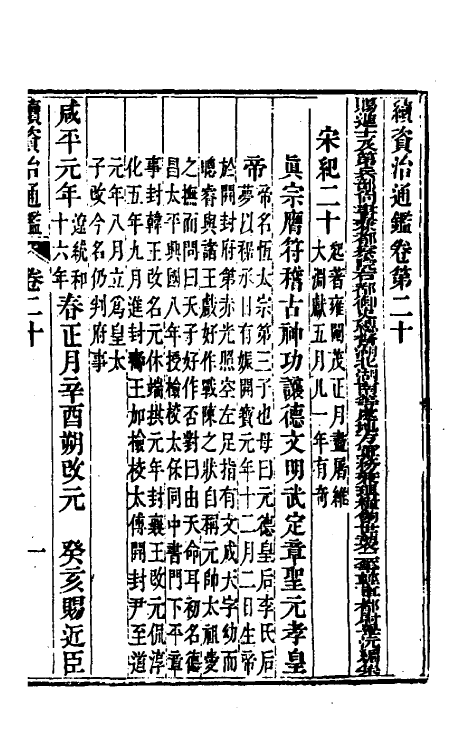 續資治通鑑卷第二十
賜進士及第兵部尚書兼都察院右都御史總督湖北湖南等處地方軍務兼理糧餉世襲二等輕車都尉畢沅編集
宋紀二十 起著雍閹茂正月盡屠維
大淵獻五月凡一年有奇
眞宗膺符稽古神功讓德文明武定章聖元孝皇
帝 帝名恆太宗第三子也母曰元德皇后李氏后
夢以裾承日有娠開寶元年十二月二日生帝
於開封府第赤光照空左足指有文成天字幼而
聰睿與諸王戲好作戰陳之狀自稱元帥太祖愛
之撫而問曰天子好作否對曰由天命耳初名德
昌太平興國八年授檢校太保同中書門下平章
事封韓王改名元休端拱元年封襄王改元侃淳
化五年九月進封壽王加檢校太傅開封尹至道
元年八月立爲皇太
子改今名仍判府事
咸平元年 遼統和
十六年 春正月辛酉朔改元 癸亥賜近臣
續資治通鑑 卷二十 一